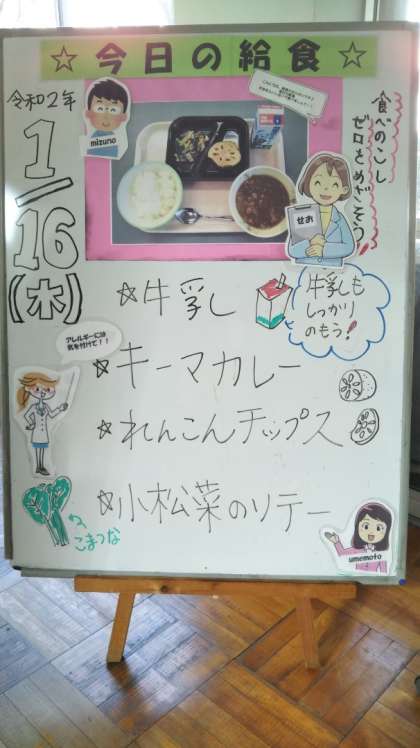 ☆今日の給食☆
令和2年
1/16
(木)
mizuno
食べのこし
ゼロをめざそう!
せお
☆牛乳
牛乳も
しっかり
のもう!
アレルギーには
気を付けて!!
☆キーマカレー
☆れんこんチップス
☆小松菜のソテー
こまつな
umemoto